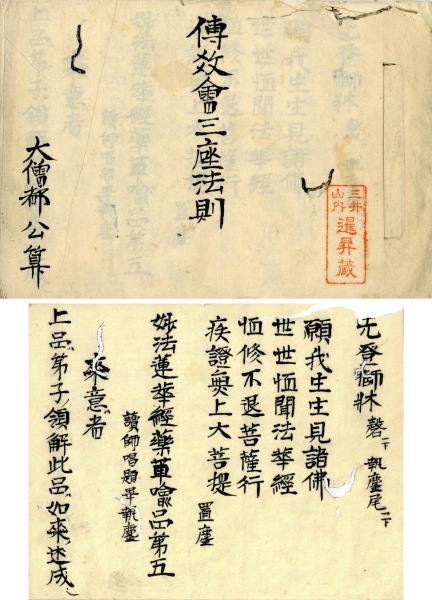 傳教會三座法則
大僧都公算
三井
山内
暹昇藏
先登獅牀 磬一下 執麈尾一下
願我生生見諸佛
世世恒聞法華經
恒修不退菩薩行
疾證無上大菩提 置麈
妙法蓮華經藥草喩品第五
讀師唱題畢執麈
來意者
上品弟子領解此品如來述成